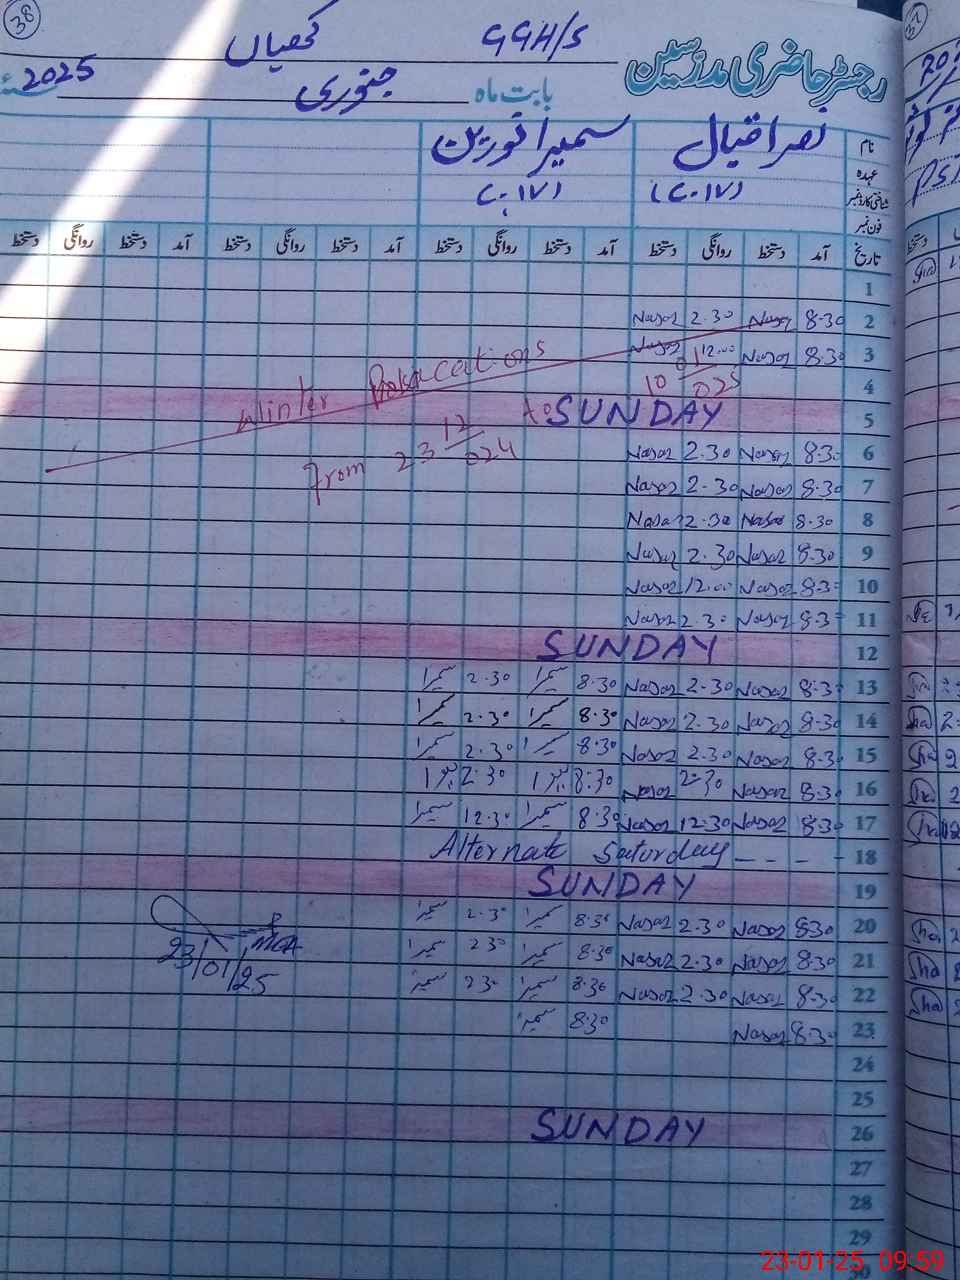 38
GGH/S کھیاں
رجسٹر حاضری مدرسین
بابت ماہ جنوری 2025
نام نصر اقبال سمیرا نورین
عہدہ
شناختی کارڈ نمبر
فون نمبر
تاریخ آمد دستخط روانگی دستخط آمد دستخط روانگی دستخط آمد دستخط روانگی دستخط آمد دستخط روانگی دستخط
1
2 8.30 Nasar 2.30 Nasar
3 8.30 Nasar 12.00 Nasar
4
Winter vacations
From 23 12/024 to 10 01/025
5 SUNDAY
6 8.30 Nasar 2.30 Nasar
7 8.30 Nasar 2.30 Nasar
8 8.30 Nasar 2.30 Nasar
9 8.30 Nasar 2.30 Nasar
10 8.30 Nasar 12.00 Nasar
11 8.30 Nasar 2.30 Nasar
12 SUNDAY
13 8.30 Nasar 2.30 Nasar 8.30 سمیرا 2.30 سمیرا
14 8.30 Nasar 2.30 Nasar 8.30 سمیرا 2.30 سمیرا
15 8.30 Nasar 2.30 Nasar 8.30 سمیرا 2.30 سمیرا
16 8.30 Nasar 2.30 Nasar 8.30 سمیرا 2.30 سمیرا
17 8.30 Nasar 12.30 Nasar 8.30 سمیرا 12.30 سمیرا
18 Alternate Saturday - - - -
19 SUNDAY
20 8.30 Nasar 2.30 Nasar 8.30 سمیرا 2.30 سمیرا
21 8.30 Nasar 2.30 Nasar 8.30 سمیرا 2.30 سمیرا
22 8.30 Nasar 2.30 Nasar 8.30 سمیرا 2.30 سمیرا
23 8.30 Nasar 8.30 سمیرا
MEA
23/01/25
24
25
26 SUNDAY
27
28
29
30
23-01-25 09:59